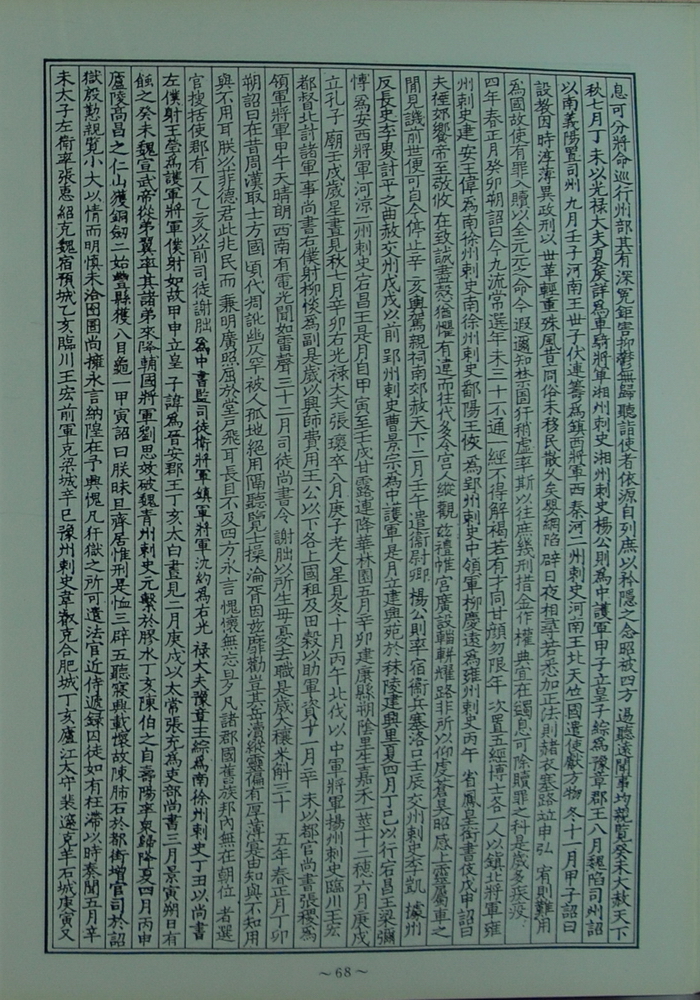 息可分將命巡行州部其有深寃鉅害抑鬱無歸聽詣使者依源自列庶以矜隱之念昭被四方逷聽遠聞事均親覽癸未大赦天下
秋七月丁未以光祿大夫夏矦詳爲車騎將軍湘州刺史湘州刺史楊公則爲中護軍甲子立皇子綜爲豫章郡王八月魏陷司州詔
以南義陽置司州九月壬子河南王世子伏連籌爲鎮西將軍西秦河二州刺史河南王北天竺國遣使獻方物冬十一月甲子詔曰
設教因時淳薄異政刑以世革輕重殊風昔商俗未移民散久矣嬰網陷辟日夜相尋若悉加正法則赭衣塞路竝申弘宥則難用
爲國故使有罪入贖以全元元之命今遐邇知禁圄犴稍虛率斯以往庶幾刑措金作權典宜在蠲息可除贖罪之科是歲多疾疫
四年春正月癸卯朔詔曰今九流常選年未三十不通一經不得解褐若有才同甘顔勿限年次置五經博士各一人以鎮北將軍雍
州刺史建安王偉爲南徐州刺史南徐州刺史鄱陽王恢爲郢州刺史中領軍柳慶遠爲雍州刺史丙午省鳳皇銜書伎戊申詔曰
夫禋郊饗帝至敬攸在致誠盡慤猶懼有違而往代多令宮人縱觀玆禮帷宮廣設輜軿耀路非所以仰虔蒼昊昭感上靈屬車之
間見譏前世便可自今停止辛亥輿駕親祠南郊赦天下二月壬午遣衛尉卿楊公則率宿衛兵塞洛口壬辰交州刺史李凱據州
反長史李畟討平之曲赦交州戊戌以前郢州刺史曹景宗爲中護軍是月立建興苑於秣陵建興里夏四月丁巳以行宕昌王梁彌
博爲安西將軍河涼二州刺史宕昌王是月自甲寅至壬戌甘露連降華林園五月辛卯建康縣朔陰里生嘉禾一莖十二穗六月庚戌
立孔子廟壬戌歲星晝見秋七月辛卯右光祿大夫張瓌卒八月庚子老人星見冬十月丙午北伐以中軍將軍楊州刺史臨川王宏
都督北討諸軍事尚書右僕射柳惔爲副是歲以興師費用王公以下各上國租及田穀以助軍資十一月辛未以都官尚書張稷爲
領軍將軍甲午天晴朗西南有電光聞如雷聲三十二月司徒尚書令謝朏以所生母憂去職是歲大穰米斛三十 五年春正月丁卯
朔詔曰在昔周漢取士方國頃代凋訛幽仄罕被人孤地絕用隔聽覽士操淪胥因玆靡勸豈其岳瀆縱靈偏有厚薄寔由知與不知用
與不用耳朕以菲德君此兆民而兼明廣照屈於堂戶飛耳長目不及四方永言愧懷無忘旦夕凡諸郡國舊族邦內無在朝位者選
官搜括使郡有一人乙亥以前司徒謝朏爲中書監司徒衛將軍鎮軍將軍沈約爲右光祿大夫豫章王綜爲南徐州刺史丁丑以尚書
左僕射王瑩爲護軍將軍僕射如故甲申立皇子諱爲晉安郡王丁亥太白晝見二月庚戌以太常張充爲吏部尚書三月景寅朔日有
蝕之癸未魏宣武帝從弟翼率其諸弟來降輔國將軍劉思效破魏青州刺史元繫於膠水丁亥陳伯之自壽陽率衆歸降夏四月丙申
廬陵高昌之仁山獲銅劒二始豐縣獲八目龜一甲寅詔曰朕昧旦齊居惟刑是恤三辟五聽寤興載懷故陳肺石於都街增官司於詔
獄殷懃親覽小大以情而明愼未洽囹圄尚擁永言納隍在予興愧凡犴獄之所可遣法官近侍遞録囚徒如有枉滯以時奏聞五月辛
未太子左衛率張惠紹克魏宿預城乙亥臨川王宏前軍克梁城辛巳豫州刺史韋叡克合肥城丁亥廬江太守裴邃克羊石城庚寅又
~68~